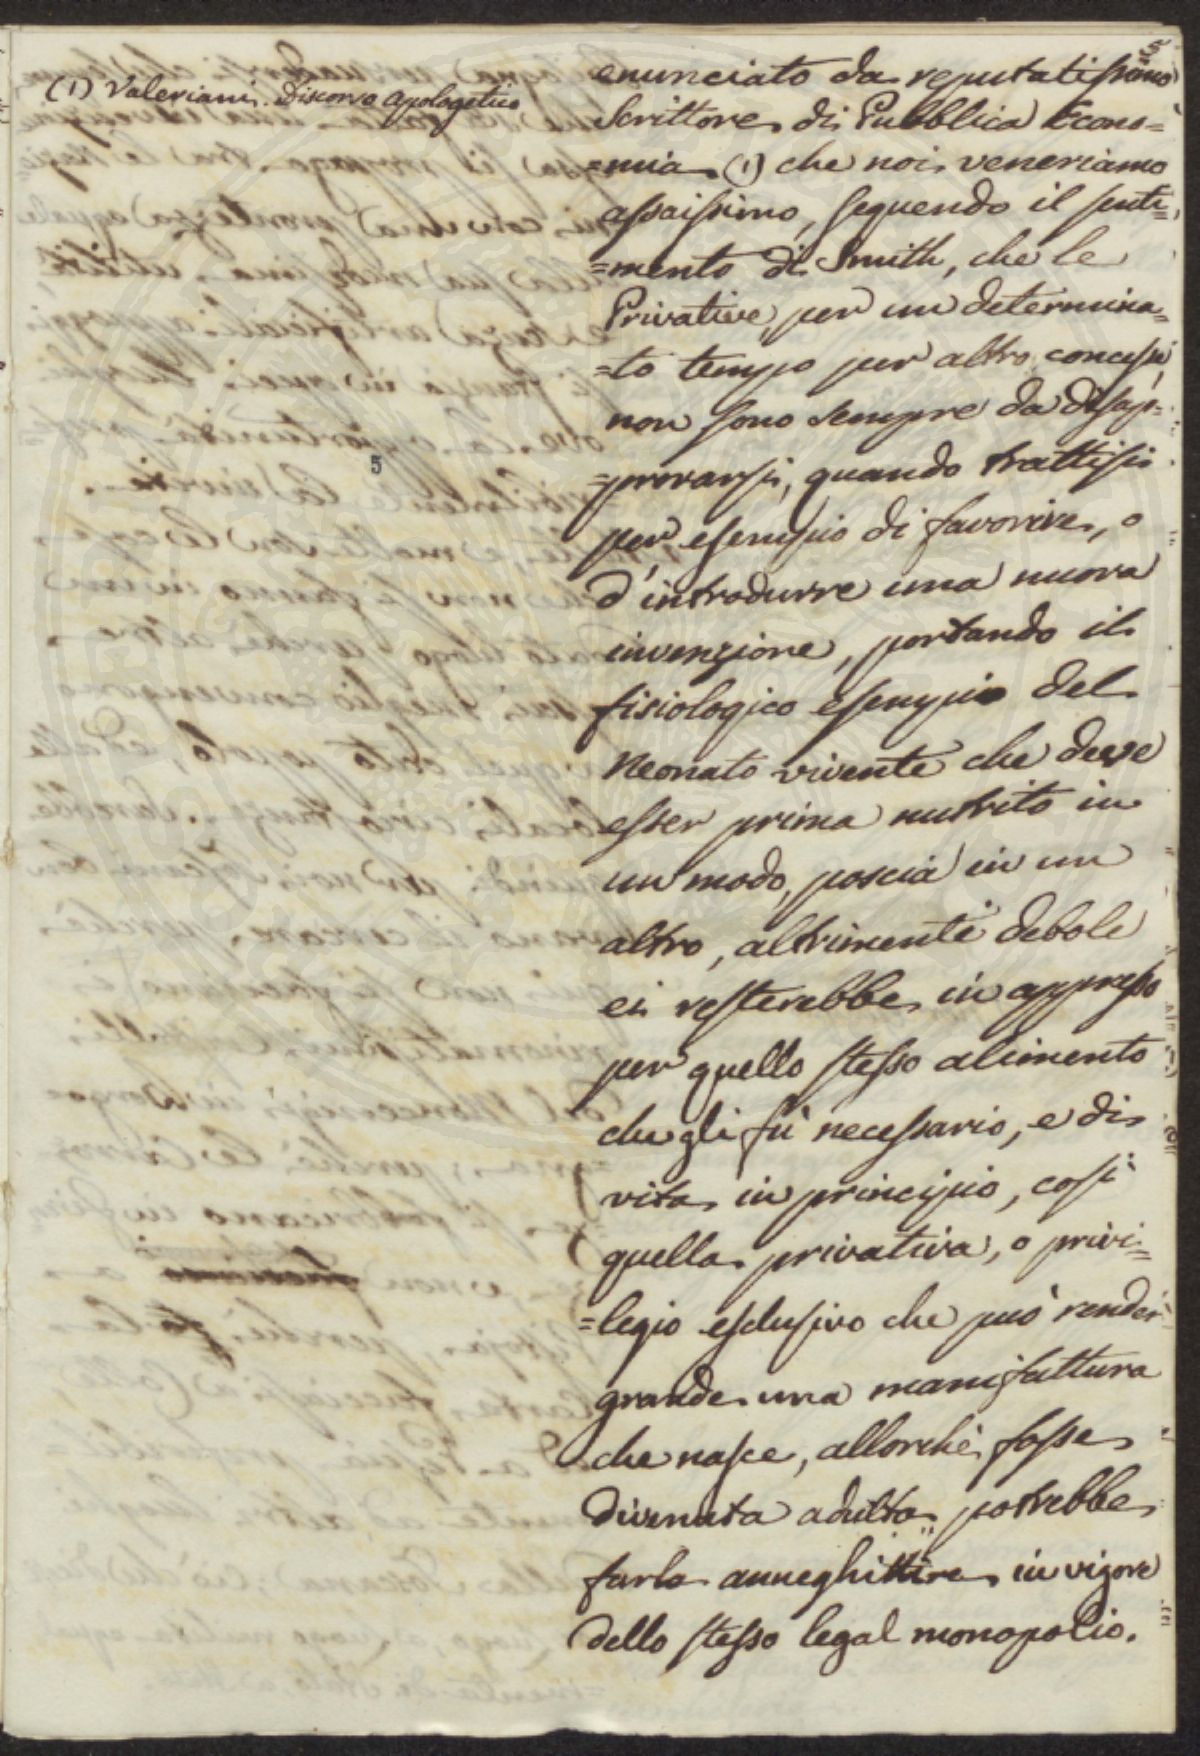 5
(1) Valeriani. Discorso Apologetico
enunciato da reputatissimo
Scrittore di Pubblica Econo=
=mia (1) che noi veneriamo
assaissimo, seguendo il senti=
=mento di Smith, che le
Privative, per un determina=
=to tempo per altro concesse,
non sono sempre da disap=
=provarsi, quando trattisi
per esempio di favorire, o
d'introdurre una nuova
invenzione, portando il
fisiologico esempio del
Neonato vivente che deve
esser prima nutrito in
un modo, poscia in un
altro, altrimenti debole
ei resterebbe in appresso
per quello stesso alimento
che gli fù necessario, e di
vita in principio, così
quella privativa, o privi=
=legio esclusivo che può render
grande una manifattura
che nasce, allorchè fosse
divenuta adulta potrebbe
farla anneghittire in vigore
dello stesso legal monopolio.
5